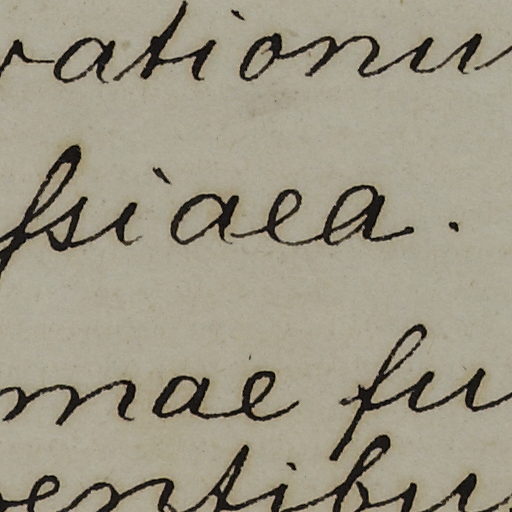 vationu
ssiaea.
mae fu
entibu